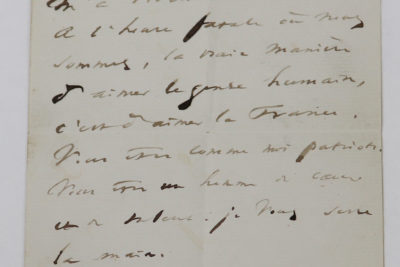 A l'heure fatale où nous
sommes, la vraie manière
d'aimer le genre humain,
c'est d'aimer la France.
Vous êtes comme moi patriote.
Vous êtes un homme de cœur
et de talent. je vous serre
la main.